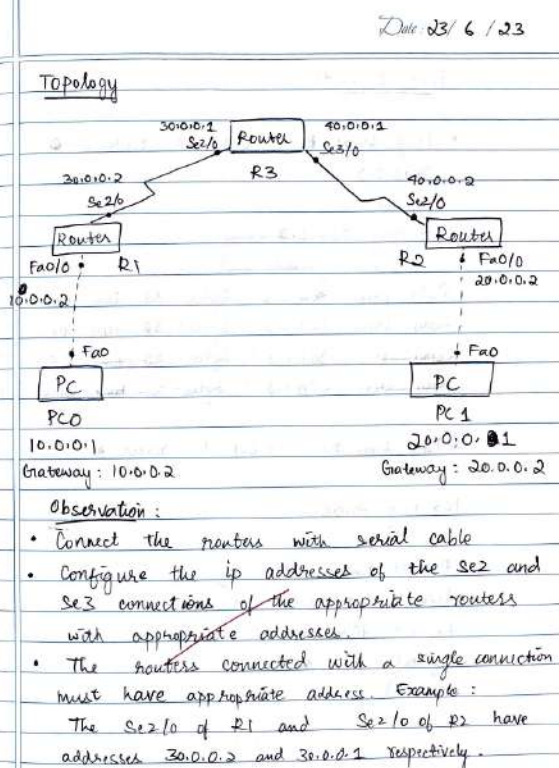 Date: 23/ 6 / 23
Topology
30.0.0.1
40.0.0.1
Se2/0
Router
Se3/0
R3
30.0.0.2
40.0.0.2
Se2/0
Se2/0
Router
Router
Fa0/0
R1
R2
Fa0/0
10.0.0.2
20.0.0.2
Fa0
Fa0
PC
PC
PC0
PC 1
10.0.0.1
20.0.0.1
Gateway : 10.0.0.2
Gateway : 20.0.0.2
Observation :
• Connect the routers with serial cable
• Configure the ip addresses of the se2 and
se3 connections of the appropriate routers
with appropriate addresses.
• The routers connected with a single connection
must have appropriate address. Example :
The Se2/0 of R1 and Se2/0 of R2 have
addresses 30.0.0.2 and 30.0.0.1 respectively.